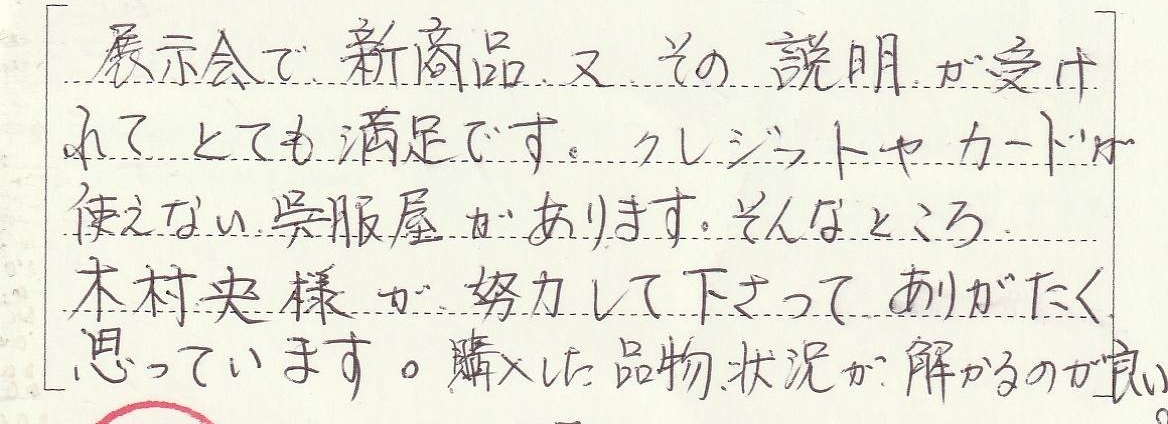 展示会で、新商品、又、その説明が受け
れてとても満足です。クレジットやカードが
使えない呉服屋があります。そんなところ
木村央様が努力して下さってありがたく
思っています。購入した品物、状況が解かるのが良い。